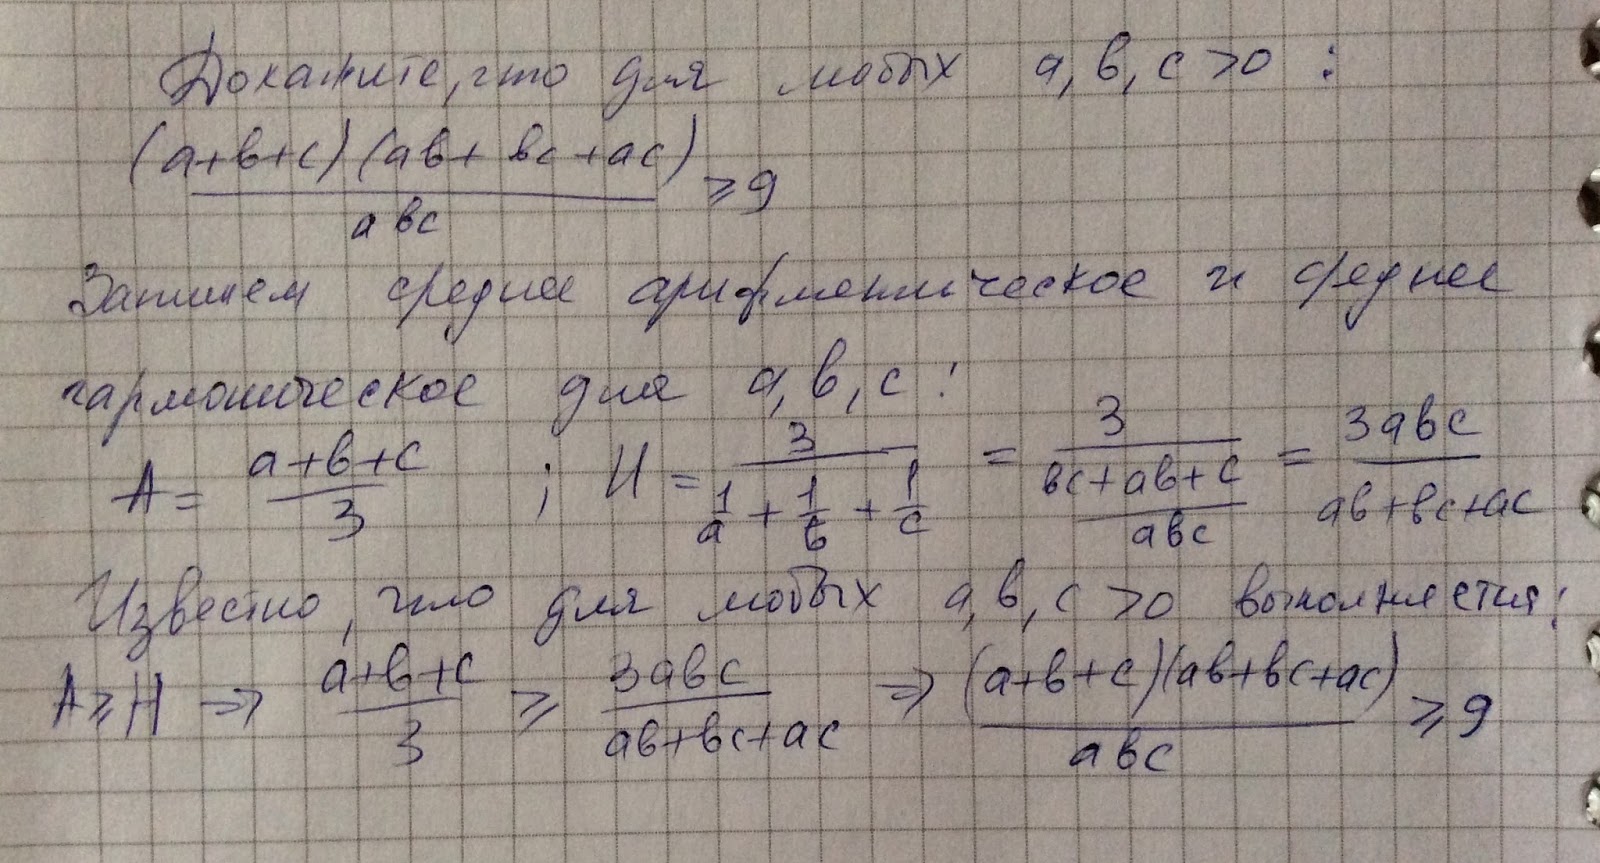 Докажите, что для любых a, b, c > 0 :
(a+b+c)(ab+bc+ac)/abc ≥ 9
Запишем среднее арифметическое и среднее
гармоническое для a, b, c :
A = (a+b+c)/3 ; H = 3/(1/a + 1/b + 1/c) = 3/((bc+ab+c)/abc) = 3abc/(ab+bc+ac)
Известно, что для любых a, b, c > 0 выполняется:
A ≥ H ⇒ (a+b+c)/3 ≥ 3abc/(ab+bc+ac) ⇒ (a+b+c)(ab+bc+ac)/abc ≥ 9